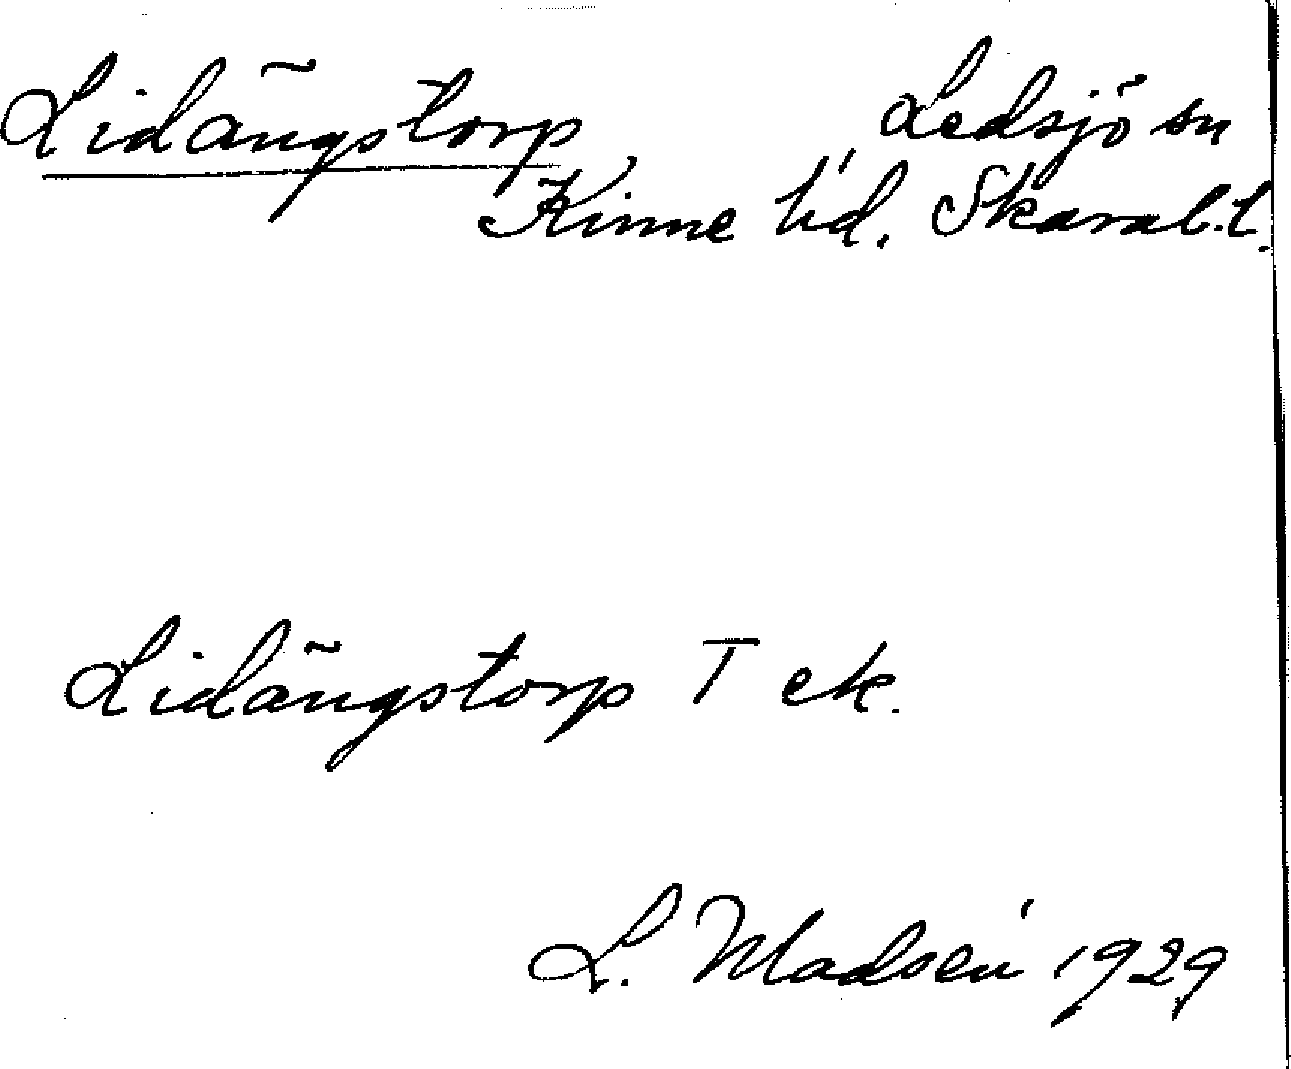 Lidängstorp Ledsjö sn
Kinne hd. Skarab.l.
Lidängstorp T ek.
L. Madsen 1929